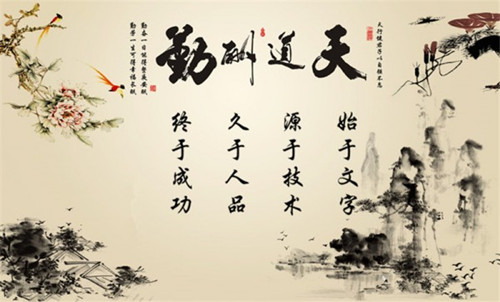 天道酬勤
天行健君子以自强不息
勤奋一日可得一夜安眠
勤劳一生可得幸福长眠
始于文字
源于技术
久于人品
终于成功